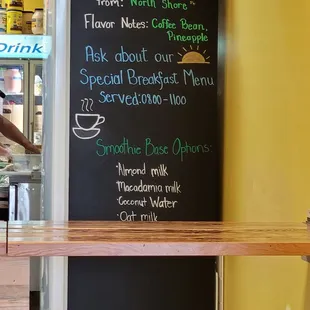 from: North Shore
Flavor Notes: Coffee Bean,
Pineapple
Drink
Ask about our
Special Breakfast Menu
Served: 0800-1100
Smoothie Base Options:
·Almond milk
·Macadamia milk
·Coconut Water
·Oat milk